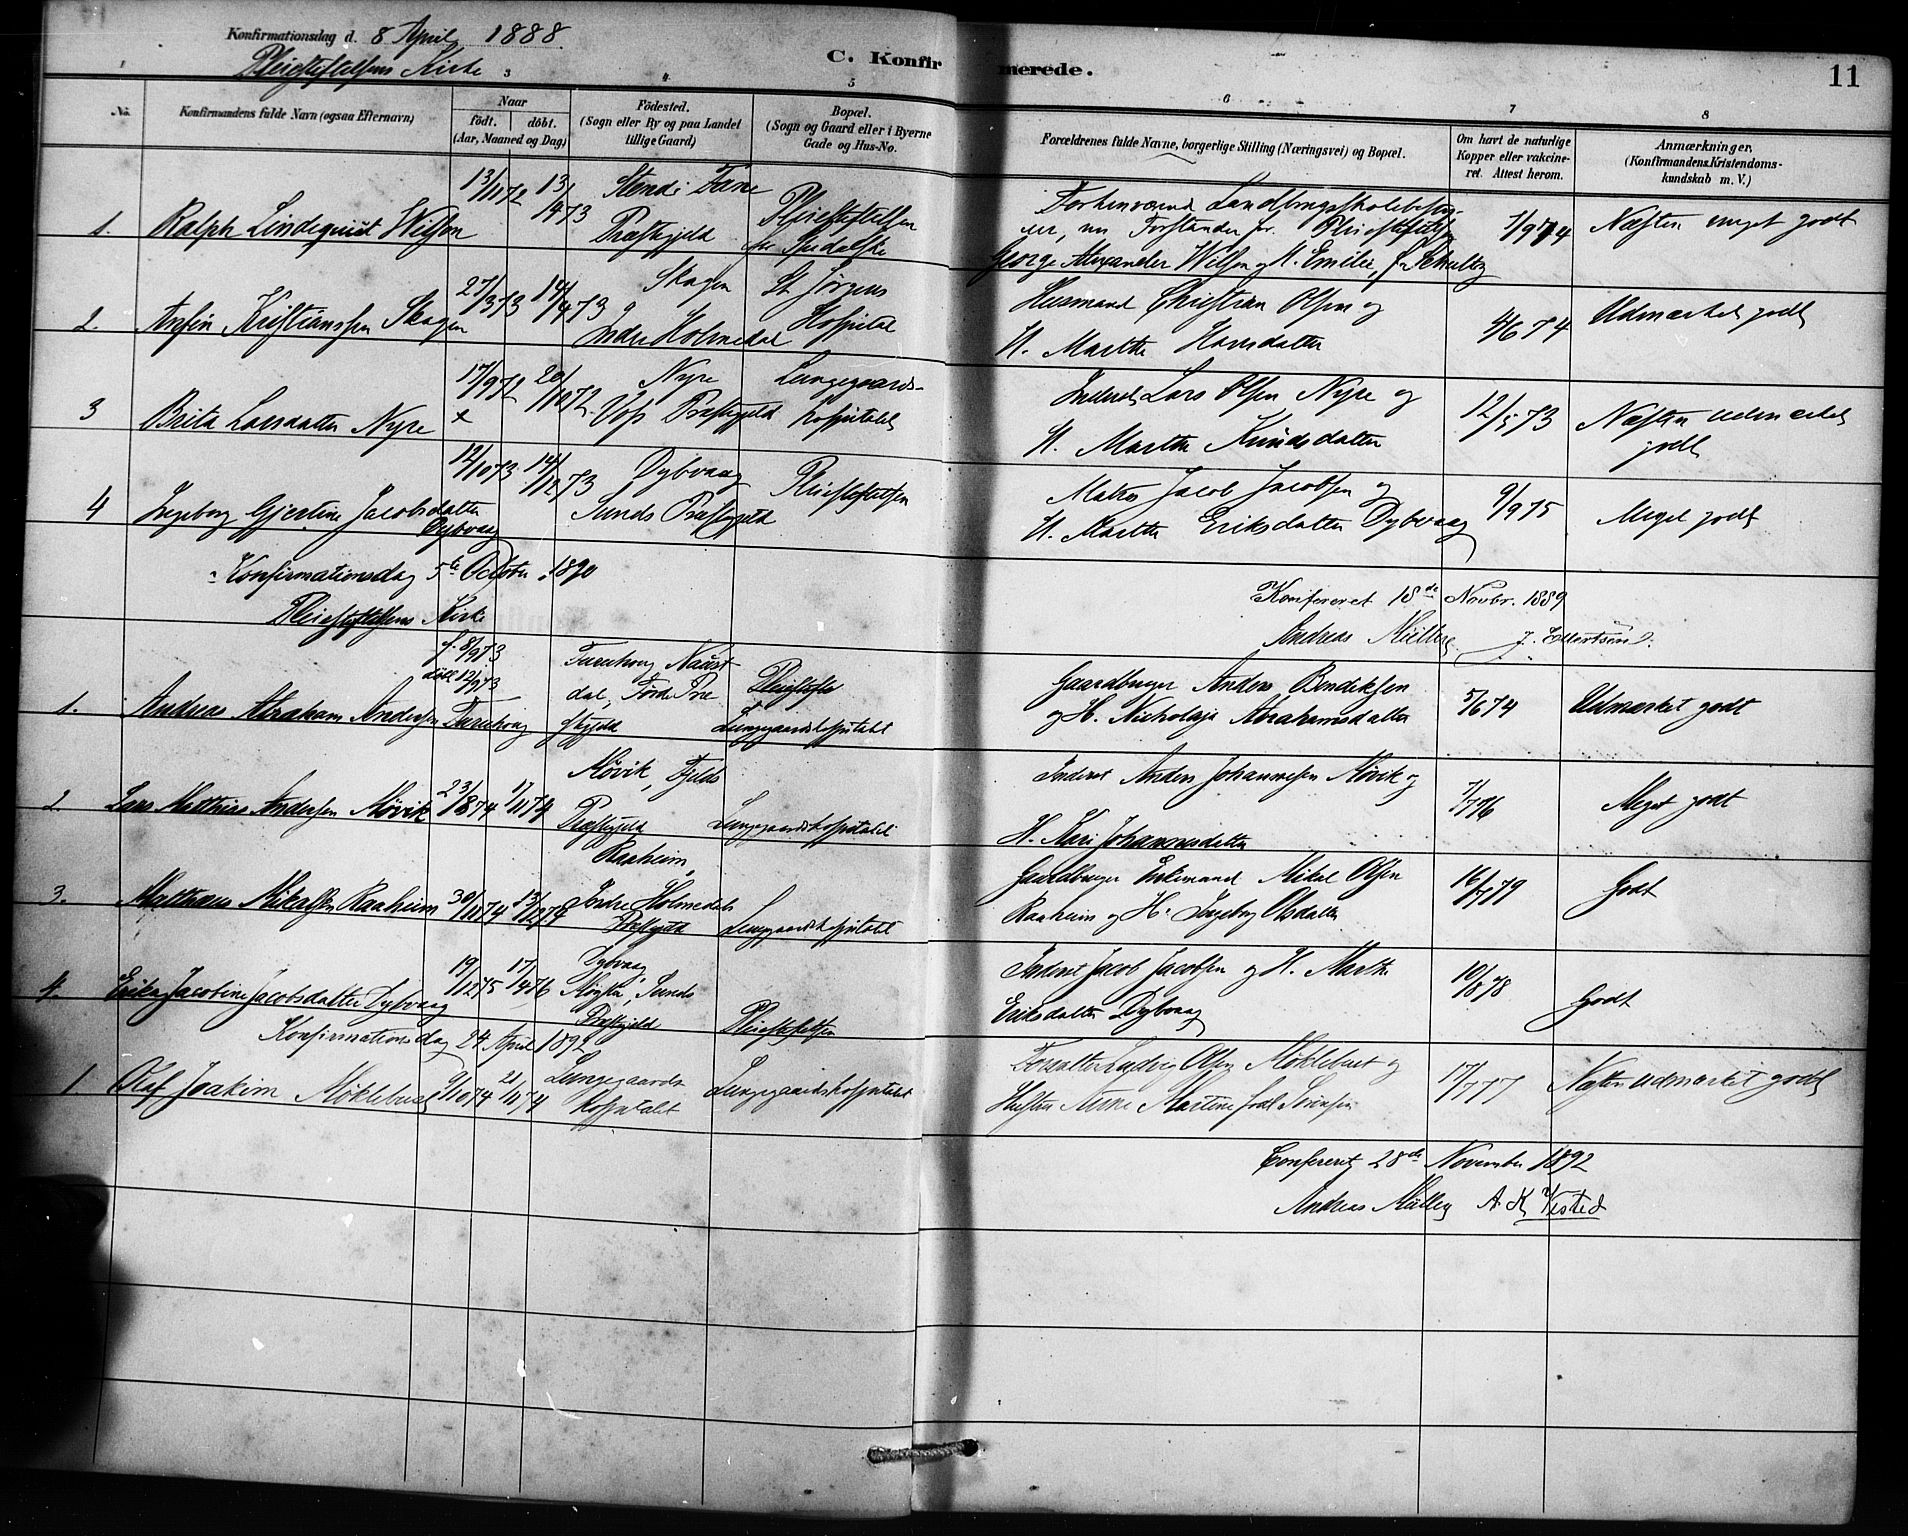 Konfirmationsdag d. 8 April 1888.
Pleiestiftelsens Kirke
C. Konfirmerede.
11
1 3 4 5 6 7 8
No.
Konfirmandens fulde Navn (ogsaa Efternavn)
Naar
födt. döbt.
(Aar, Maaned og Dag)
Födested.
(Sogn eller By og paa Landet
tillige Gaard)
Bopæl.
(Sogn og Gaard eller i Byerne
Gade og Hus-No.
Forældrenes fulde Navne, borgerlige Stilling (Næringsvei) og Bopæl.
Om havt de naturlige
Kopper eller vakcine-
ret. Attest herom.
Anmærkninger,
(Konfirmandens Kristendoms-
kundskab m. V.)
1. Ralph Lindequist Wilson
13/11 72 13/4 73
Stend i Fane
Præstegjeld
Pleiestiftelsen
for Spedalske
Forhenværend Landbrugsskolebesty-
rer, nu Forstander for Pleiestiftelsen
George Alexander Wilson og H. Emilie f. Schultz
1/9 74
Næsten meget godt
2. Anfin Kristianssen Skagen
27/3 73 14/4 73
Skagen
Indre Holmedal
St Jørgens
Hospital
Husmand Christian Olsen og
H. Marthe Hansdatter
4/6 74
Udmærket godt
3 Brita Larsdatter Nyre
17/9 72 20/10 72
x
Nyre
Voss Præstegjeld
Lungegaards-
hospitalet
Inderst Lars Olsen Nyre og
H. Martha Knudsdatter
12/5 73
Næsten udmærket
godt
4 Ingeborg Gjertine Jacobsdatter
Dybvaag
12/10 73 14/12 73
Dybvaag
Sunds Præstegjeld
Pleiestiftelsen
Matros Jacob Jacobsen og
H. Marthe Eriksdatter Dybvaag
9/9 75
Meget godt
Konfirmationsdag 5te October 1890
Pleiestiftelsens Kirke
Konfereret 18de Novbr. 1889
Andreas Müller J. Ellertsen
1. Andreas Abraham Andersen
f. 8/9 73
døbt 12/9 73
dal, Førde Præ
stegjeld
Pleiestifts
Lungegaardshospitalet
Gaardbruger Anders Bendiksen
og H. Nicholaje Abrahamsdatter
5/6 74
Udmærket godt
2. Lars Mathias Andersen Møvik
23/8 74 1/11 74
Møvik, Fjelds
Præstegjeld
Lungegaardshospitalet
Inderst Anders Johannessen Møvik og
H. Kari Johannesdatter
1/7 76
Meget godt
3. Matthæus Mikalsen Raaheim
30/11 74 13/12 74
Raaheim,
Indre Holmedals
Præstegjeld
Lungegaardshospitalet
Gaardbruger Enkemand Mikal Olsen
Raaheim og H. Ingeborg Olsdatter
16/7 79
Godt
4. Erika Jacobine Jacobsdatter Dybvaag
19/12 75 17/4 76
Dybvaag
Sunds
Præstegjeld
Pleiestiftelsen
Inderst Jacob Jacobsen og H. Marthe
Eriksdatter Dybvaag
10/8 78
Godt
Konfirmationsdag 24 April 1892
1. Olaf Joakim Møklebust
9/10 74 21/11 74
Lungegaards
hospitalet
Lungegaardshospitalet
Ludvig Olsen Møklebust og
Hustru Anne Martine født Sørensen
17/7 77
Næsten udmærket godt
Confereret 28de November 1892
Andreas Müller A. K. Vested